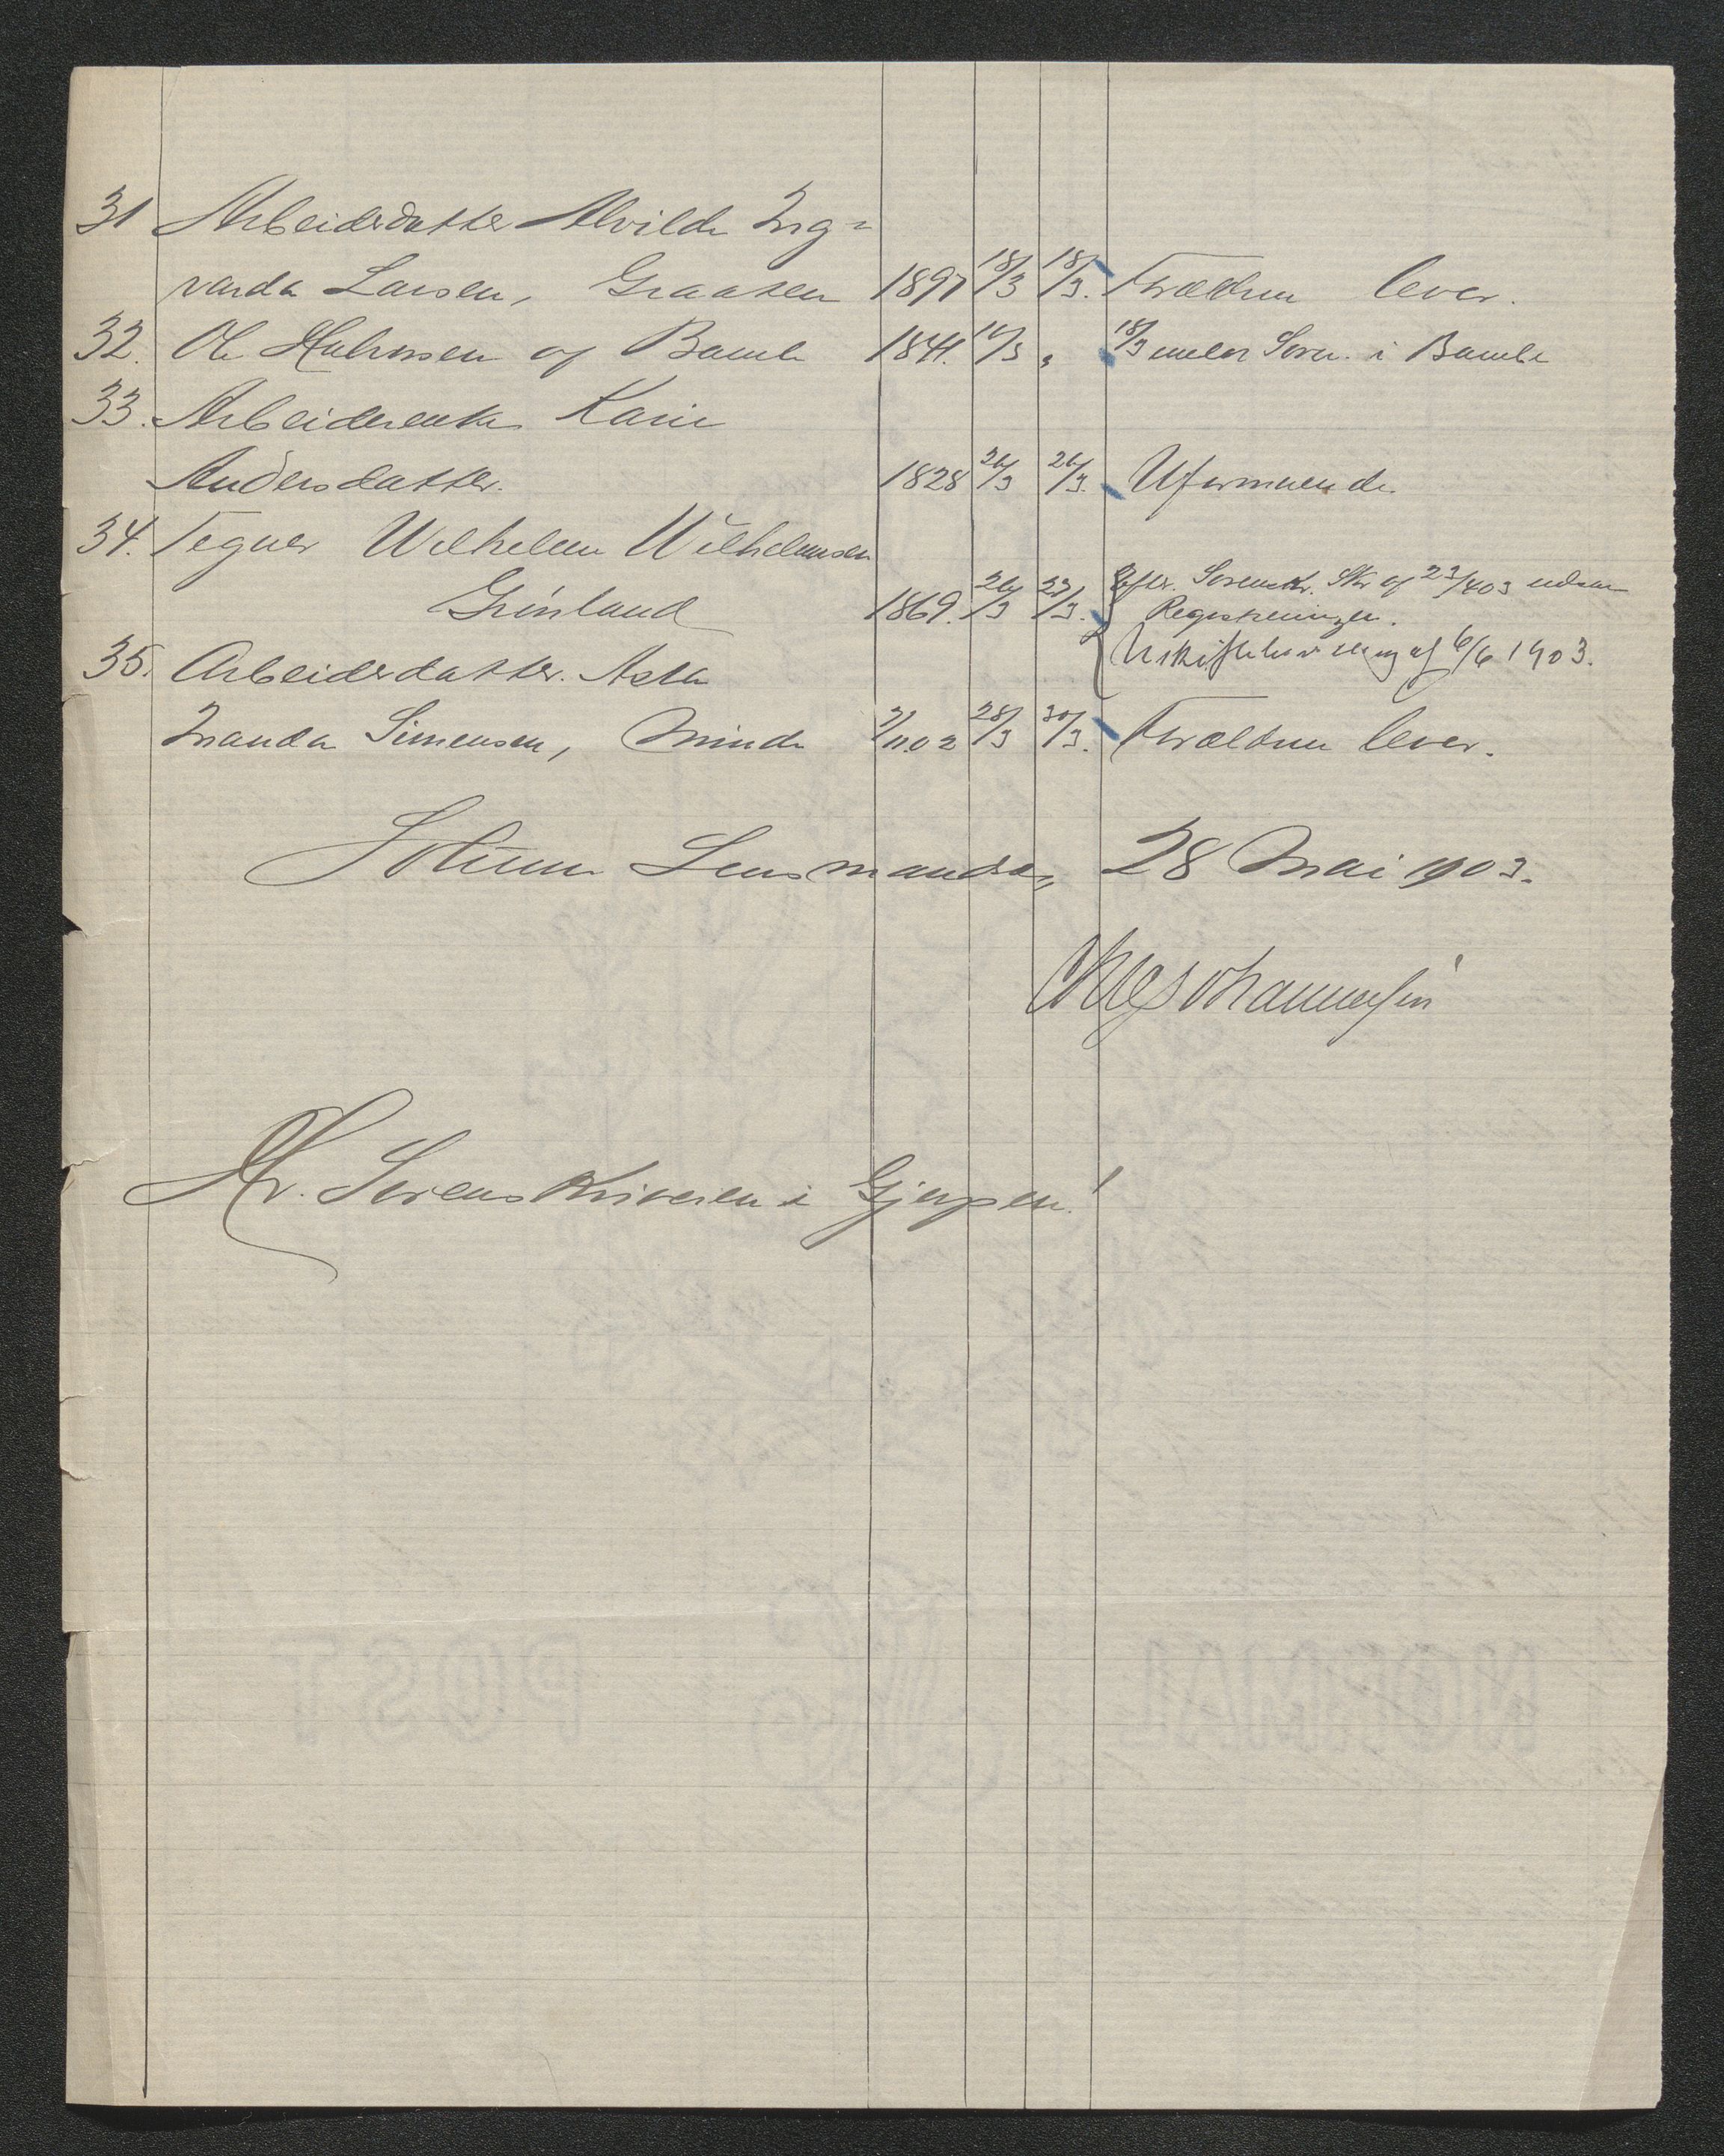 31 Arbeiderdatter Alvilde Ing=
varda Larsen, Graaten 1897 18/3 18/3. Forældrene lever.
32. Ole Halvorsen af Bamle 1841. 16/3 „ 18/3 meldt Soren. i Bamle
33. Arbeiderenke Karin
Andersdatter. 1828 26/3 26/3. Uformuende.
34. Tegner Wilhelm Wilhelmsen
Grinland 1869. 26/3 27/3. Efter Sorenskr. Skr. af 23/4 03 uden
Registreringen.
Uskifte af 6/6 1903.
35. Arbeiderdatter. Asta
Wanda Simensen, Minde 2/11.02 28/3 30/3. Forældrene lever.
Solum Lensmandsg. 28 Mai 1903.
Johannesen
Hr. Sorenskriveren i Gjerpen!
POST
NORMAL